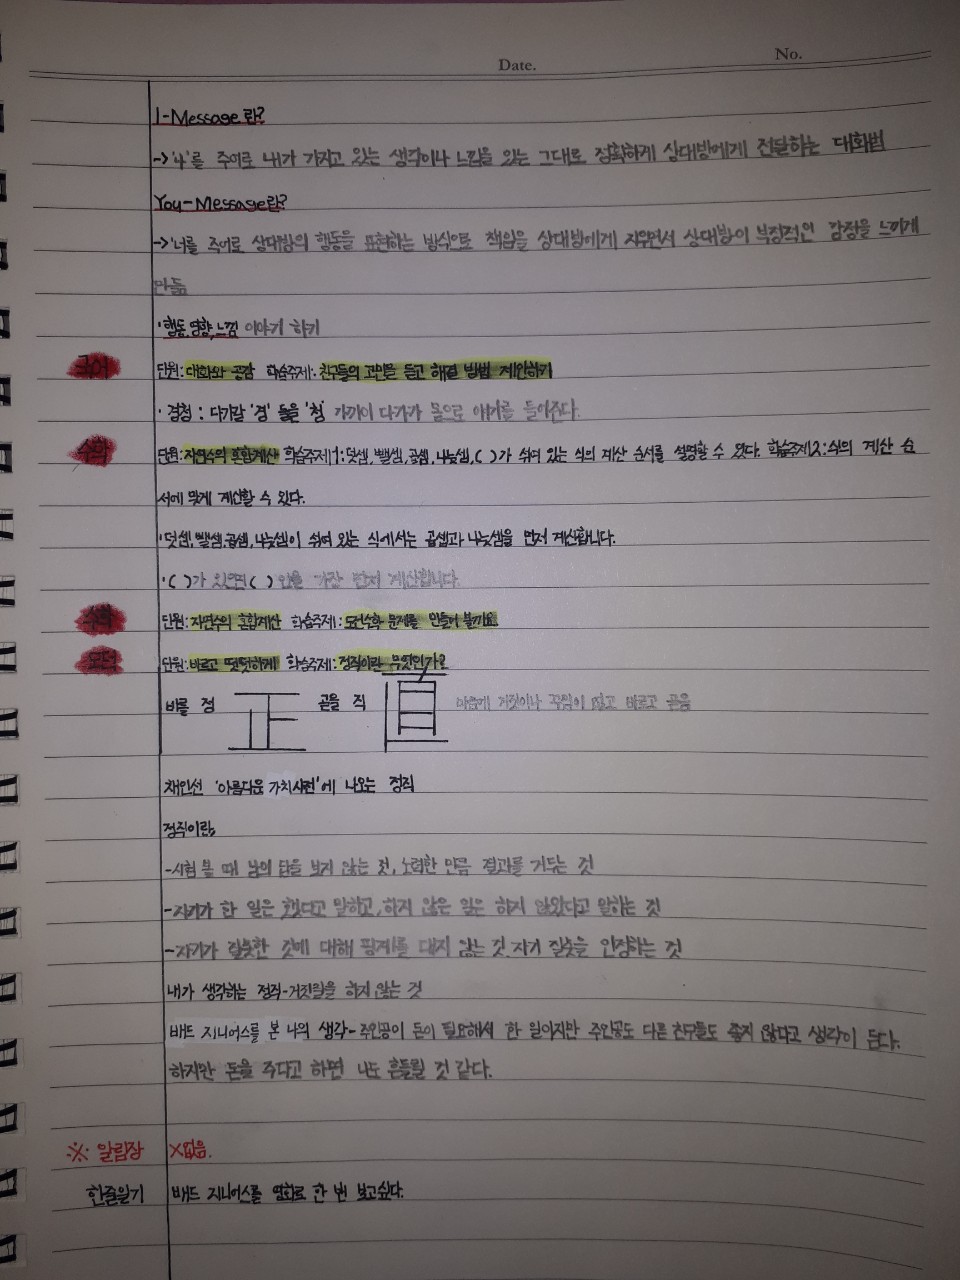 Date.
No.
I-Message란?
->'나'를 주어로 내가 가지고 있는 생각이나 느낌을 있는 그대로 정확하게 상대방에게 전달하는 대화법
You-Message란?
->'너'를 주어로 상대방의 행동을 표현하는 방식으로 책임을 상대방에게 지우면서 상대방이 부정적인 감정을 느끼게
만듦
·행동,영향,느낌 이야기 하기
국어 단원:대화와 공감 학습주제:친구들의 고민을 듣고 해결 방법 제안하기
·경청: 다가갈 '경' 들을 '청' 가까이 다가가 몸으로 얘기를 들어준다.
수학 단원:자연수의 혼합계산 학습주제1:덧셈,뺄셈,곱셈,나눗셈,( )가 섞여 있는 식의 계산 순서를 설명할 수 있다. 학습주제2:식의 계산 순
서에 맞게 계산할 수 있다.
·덧셈,뺄셈,곱셈,나눗셈이 섞여 있는 식에서는 곱셈과 나눗셈을 먼저 계산합니다.
·( )가 있으면 ( ) 안을 가장 먼저 계산합니다.
수학 단원:자연수의 혼합계산 학습주제:도전수학 문제를 만들어 볼까요
도덕 단원:바르고 떳떳하게 학습주제:정직이란 무엇인가?
바를 정 正 곧을 직 直 마음에 거짓이나 꾸밈이 없고 바르고 곧음
채인선 '아름다운 가치사전'에 나오는 정직
정직이란,
-시험 볼 때 남의 답을 보지 않는 것, 노력한 만큼 결과를 거두는 것
-자기가 한 일은 했다고 말하고, 하지 않은 일은 하지 않았다고 말하는 것
-자기가 잘못한 것에 대해 핑계를 대지 않는 것. 자기 잘못을 인정하는 것
내가 생각하는 정직-거짓말을 하지 않는 것
배드 지니어스를 본 나의 생각-주인공이 돈이 필요해서 한 일이지만 주인공도 다른 친구들도 좋지 않다고 생각이 든다.
하지만 돈을 주다고 하면 나도 흔들릴 것 같다.
※ 알림장 X없음.
한줄일기 배드 지니어스를 영화로 한 번 보고싶다.